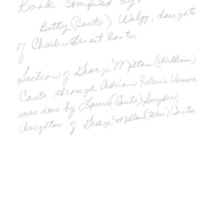 Book Compiled by:
Betty (Couts) Wolff, daughter
of Charles Stuart Couts
Section of George Milton (William)
Couts through Adrian Vernon
was done by Laura (Couts) Snyder,
daughter of George Milton (Wm) Couts